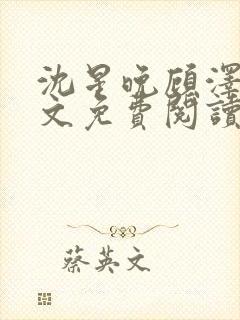 沈星晚顾泽
文免費閱讀
蔡英文